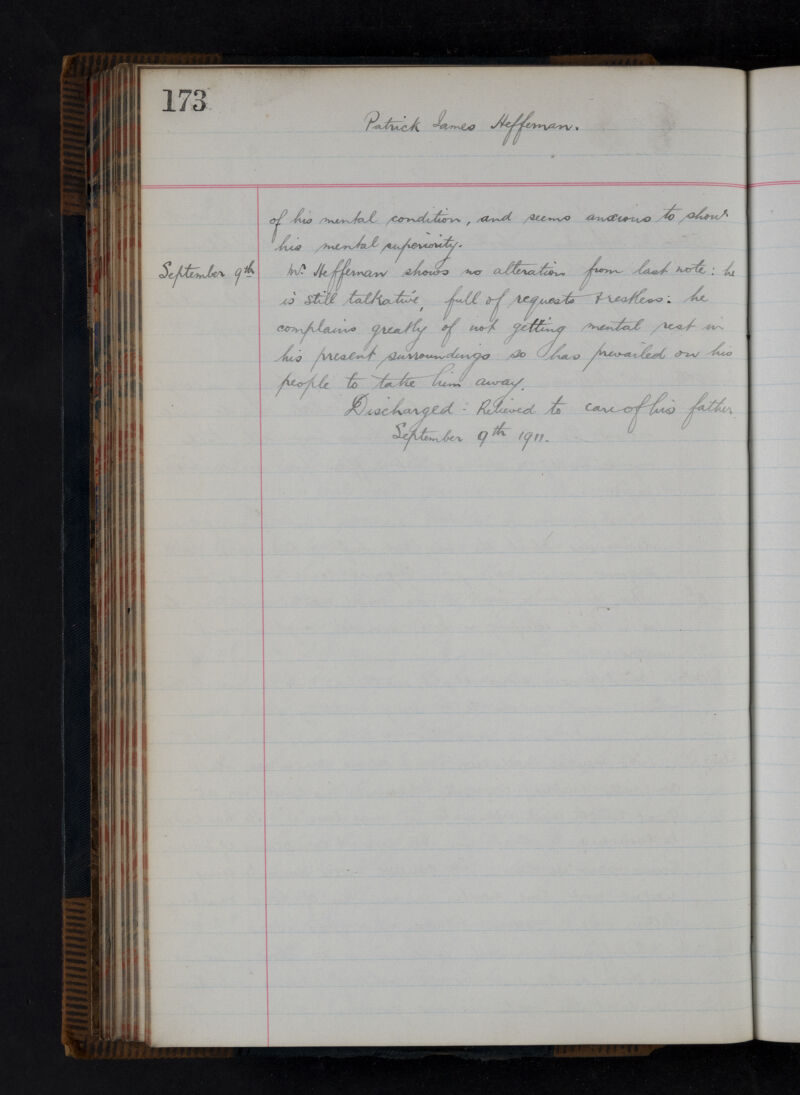 173
Patrick James Heffernan.
of his mental condition, and seems anxious to show
his mental superiority.
September 9th Mr. Heffernan shows no alteration from last note: he
is still talkative, full of requests & restless: he
complains greatly of not getting mental rest in
his present surroundings so has prevailed on his
people to take him away.
Discharged - Relieved to care of his father
September 9th 1911.